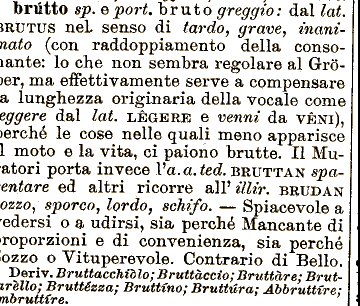 brútto sp. e port. bruto greggio: dal lat.
BRUTUS nel senso di tardo, grave, inani-
mato (con raddoppiamento della conso-
nante: lo che non sembra regolare al Grö-
ber, ma effettivamente serve a compensare
la lunghezza originaria della vocale come
leggere dal lat. LÊGERE e venni da VÊNI),
perché le cose nelle quali meno apparisce
il moto e la vita, ci paiono brutte. Il Mu-
ratori porta invece l'a.a.ted. BRUTTAN spa-
ventare ed altri ricorre all' illir. BRUDAN
sozzo, sporco, lordo, schifo. — Spiacevole a
vedersi o a udirsi, sia perché Mancante di
proporzioni e di convenienza, sia perché
Sozzo o Vituperevole. Contrario di Bello.
Deriv. Bruttacchiòlo; Bruttàccio; Bruttàre; Brut-
tarèllo; Bruttézza; Bruttíno; Bruttúra; Abbruttíre;
Imbruttíre.